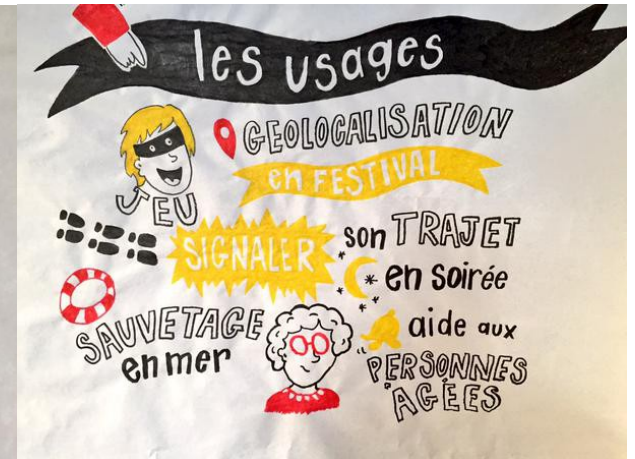 les usages
GEOLOCALISATION
en FESTIVAL
JEU
SIGNALER son TRAJET
en soirée
SAUVETAGE
en mer
aide aux
PERSONNES
AGÉES